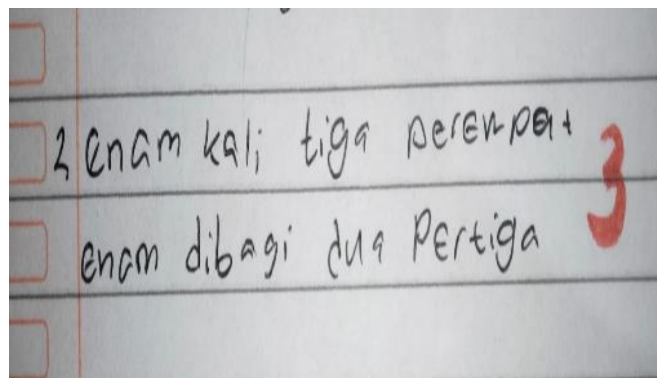 2 enam kali tiga perempat
enam dibagi dua Pertiga
3